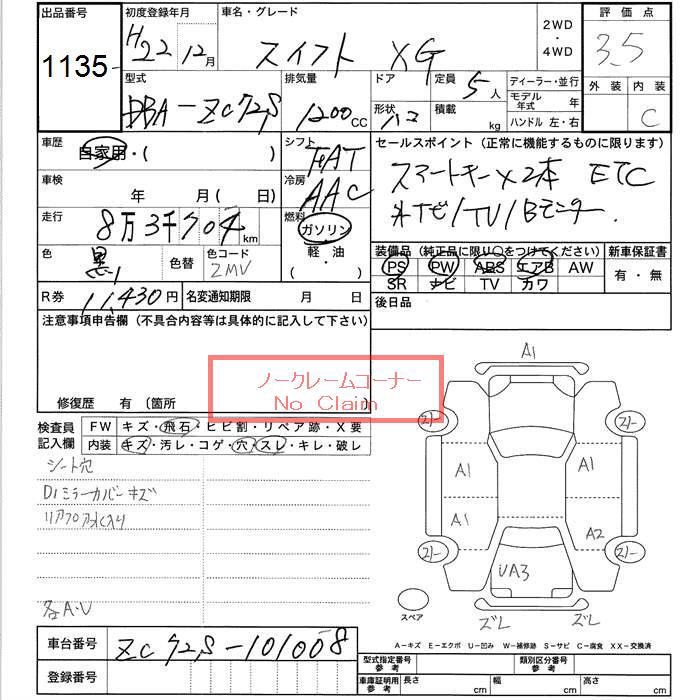 出品番号 初度登録年月 車名・グレード 2WD・4WD 評価点
1135 H22 12月 スイフト XG 3.5
型式 排気量 ドア 定員 ディーラー・並行 外装 内装
DBA-ZC72S 1200CC 5人 モデル年式 年 C
形状 ハコ 積載 kg ハンドル 左・右
車歴 自家用・( ) シフト FAT セールスポイント (正常に機能するものに限ります)
車検 年 月(日) 冷房 AAC スマートキー×2本 ETC
走行 8万3千704km 燃料 ガソリン 軽・油 ・( ) 社外ナビ/TV/Bモニター.
色 黒 色替 色コード ZMV 装備品 (純正品に限り〇をつけてください) 新車保証書
PS PW ABS エアB AW 有・無
SR ナビ TV カワ
R券 11,430円 名変通知期限 月 日 後日品
注意事項申告欄 (不具合内容等は具体的に記入して下さい)
ノークレームコーナー
No Claim
修復歴 有 (箇所 )
検査員記入欄 FW キズ・飛石・ヒビ割・リペア跡・X要
内装 キズ・汚レ・コゲ・穴・スレ・キレ・破レ
シート穴
D1ミラーカバーキズ
各A・U
A1
A1 A1
A1 A2
UA3
ズレ ズレ
スペア
A-キズ E-エクボ U-凹み W-補修跡 S-サビ C-腐食 XX-交換済
車台番号 ZC72S-101008
型式指定番号 参考 類別区分番号 参考
登録番号 車庫証明用 参考 長さ cm 幅 cm 高さ cm